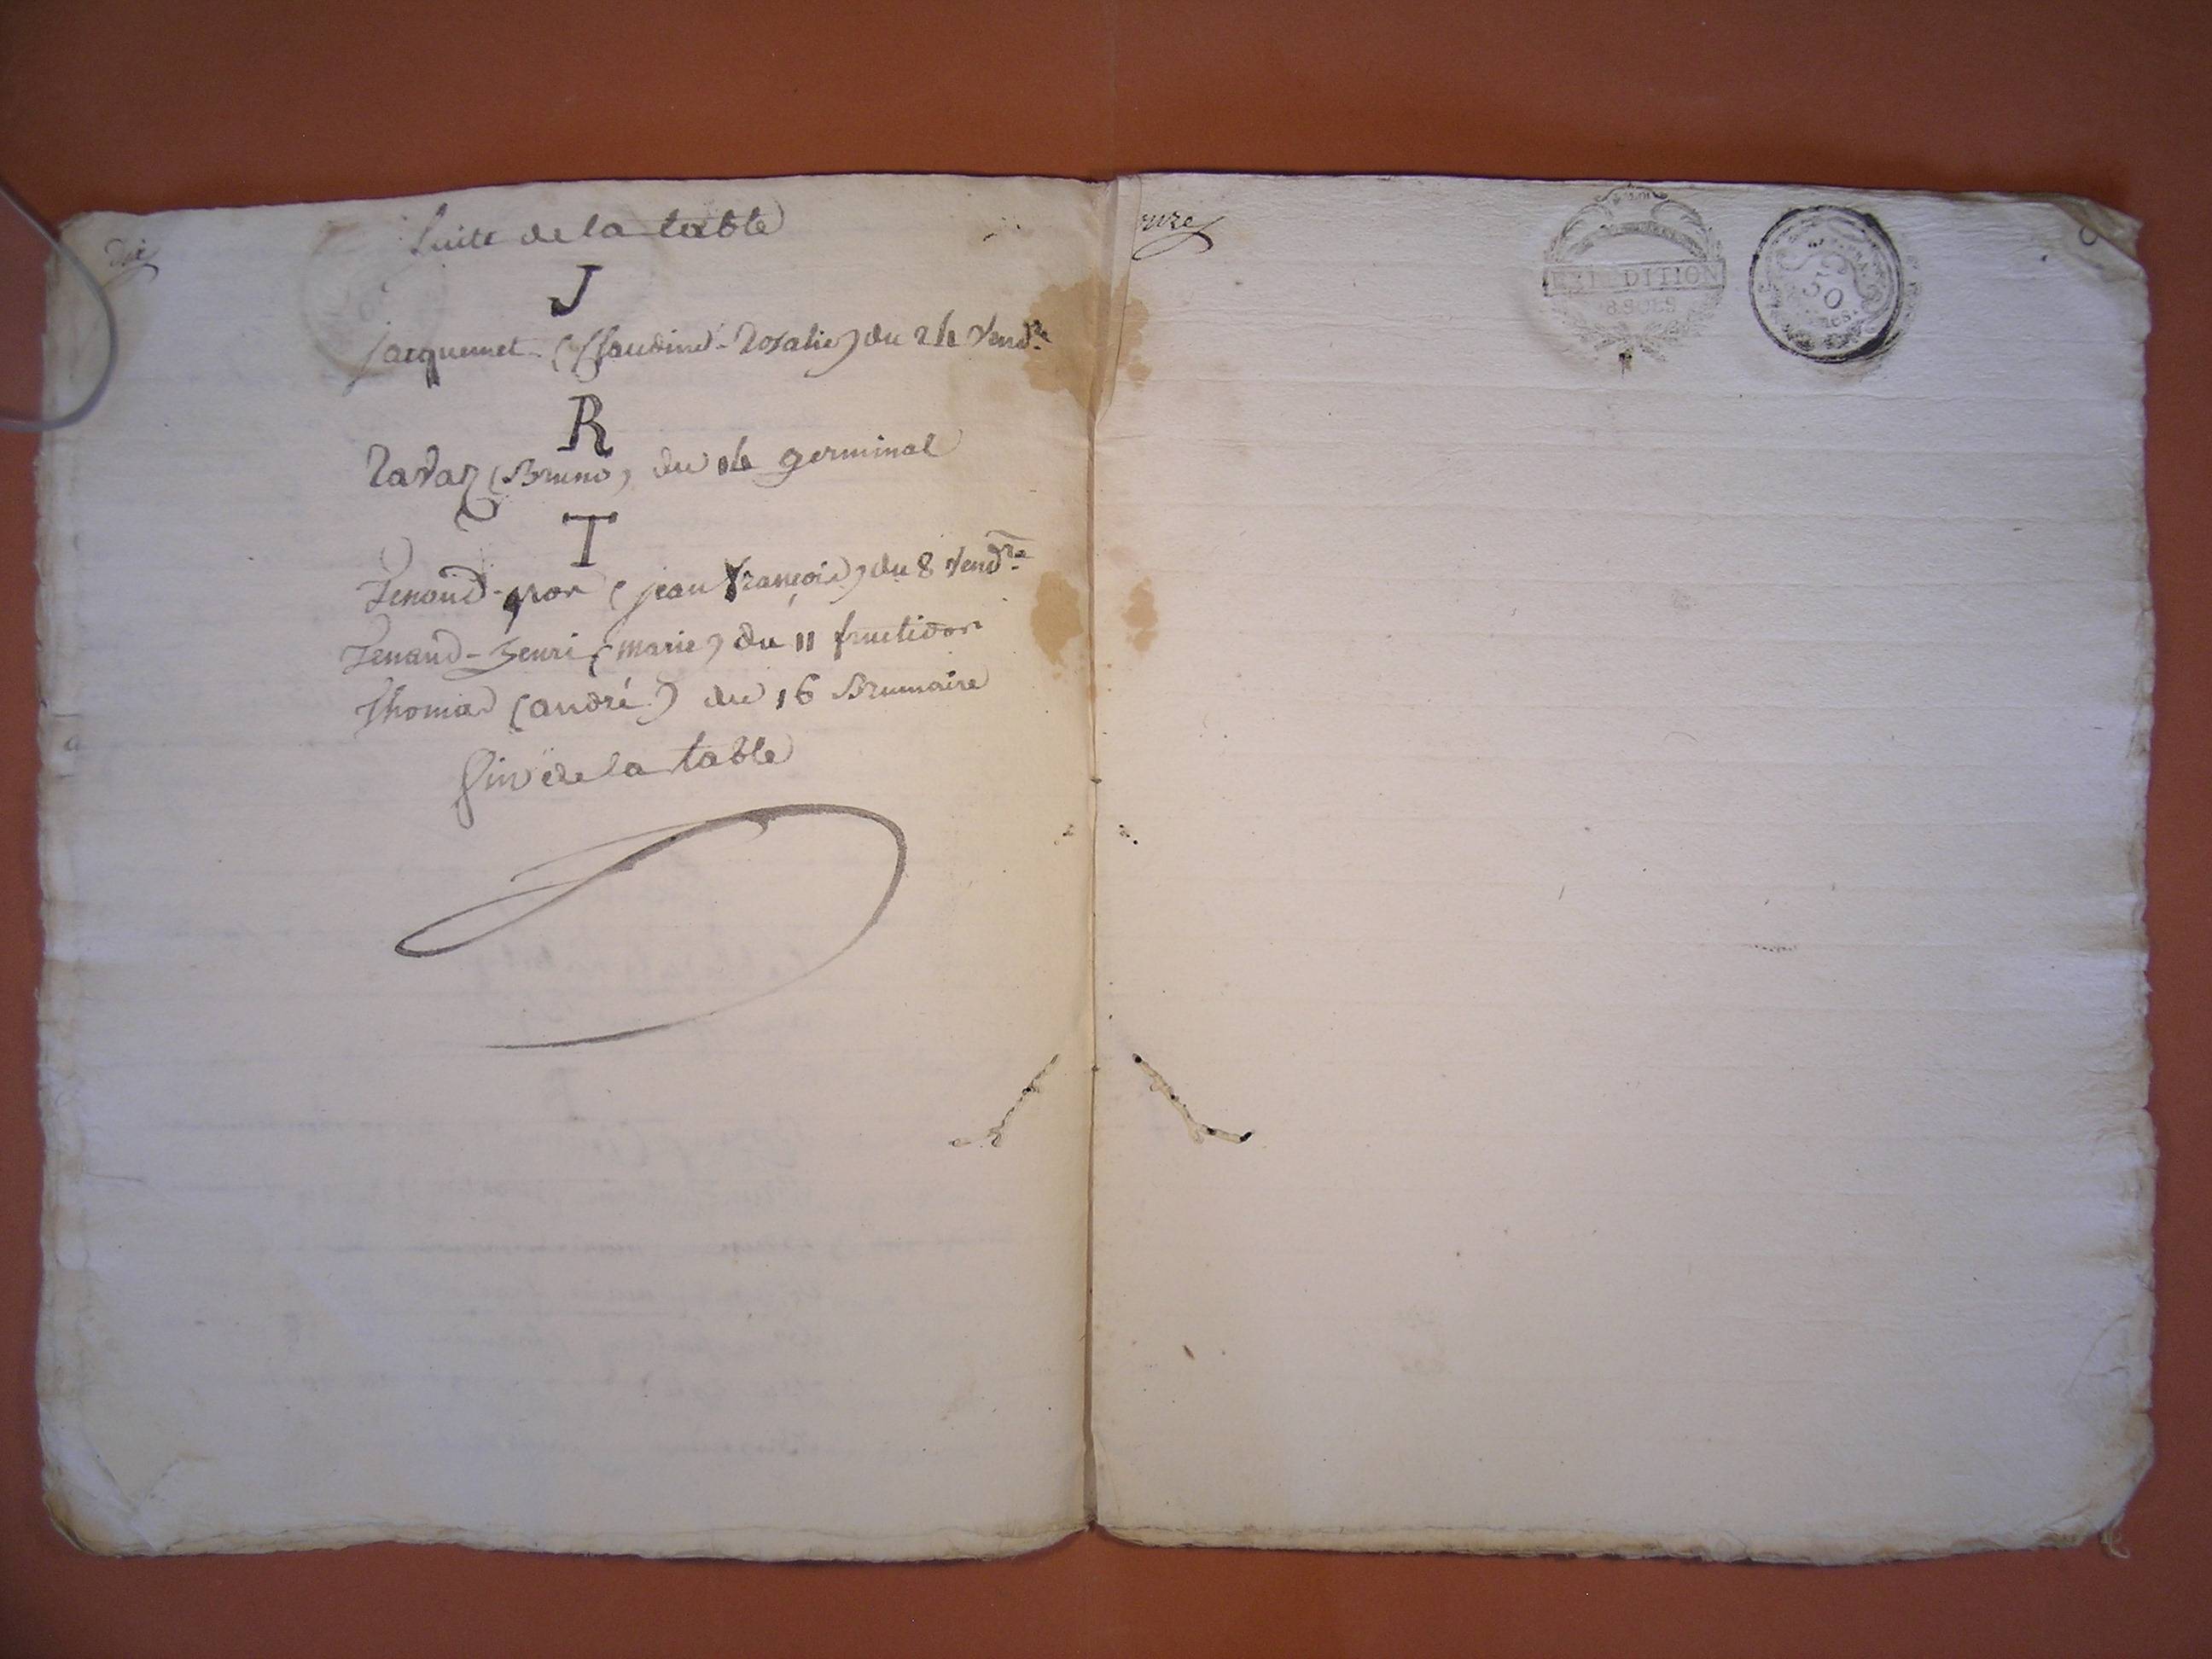 dix
Suite de la table
J
Jacquemet (Claudine-Rosalie) du 24 Vend.re
R
Ravaz (Bruno) du 14 germinal
T
Tenand- (jean françois) du 8 Vend.re
Tenand-henri (marie) du 11 fructidor
Thomas (andré) du 16 Brumaire
fin de la table
onze
EXPEDITION
8 SOLS
50